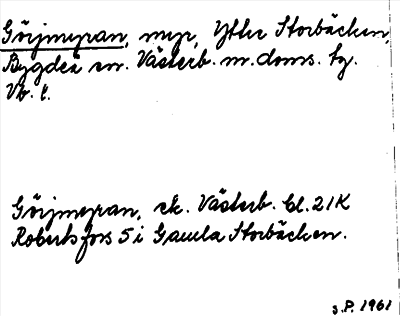 Görjmyran, myr, Yttre Storbäcken,
Bygdeå sn. Västerb. n. doms. tg.
Vb. l.
Görjmyran, ek. Västerb. bl. 21K
Robertsfors 5 i Gamla Storbäcken.
s.P. 1961